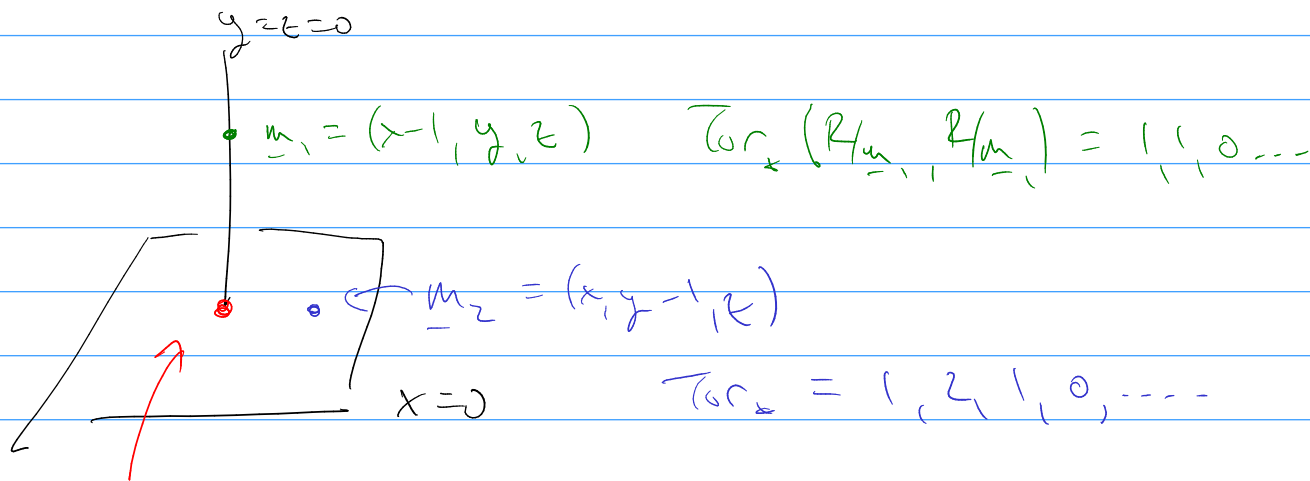 y=z=0
m₁ = (x-1, y, z) Tor_* (R/m₁, R/m₁) = 1, 1, 0 ----
m₂ = (x, y-1, z)
Tor_* = 1, 2, 1, 0, ----
x=0